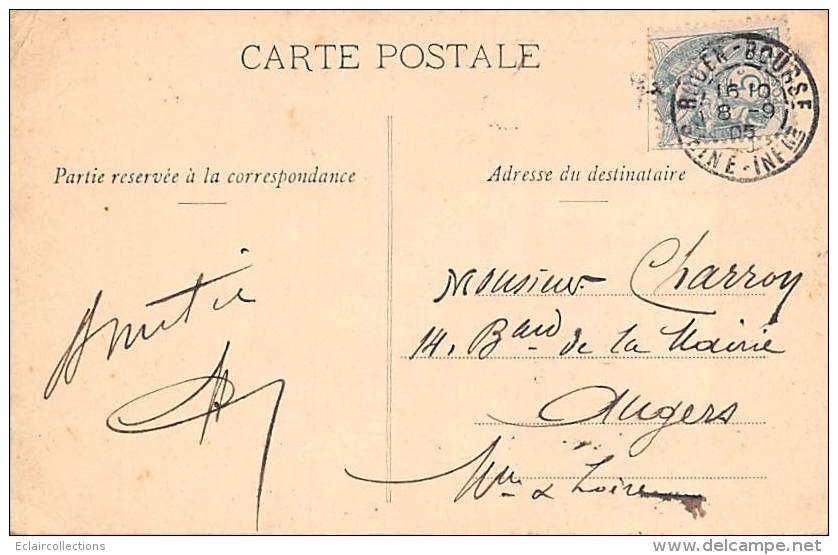 CARTE POSTALE
ROUEN-BOURSE
16 10
8 -9
05
SEINE-INFRE
Partie reservée à la correspondance
Adresse du destinataire
Amitié
Monsieur Charroy
14, Bard de la Mairie
Angers
Mne & Loire
Eclaircollections
www.delcampe.net